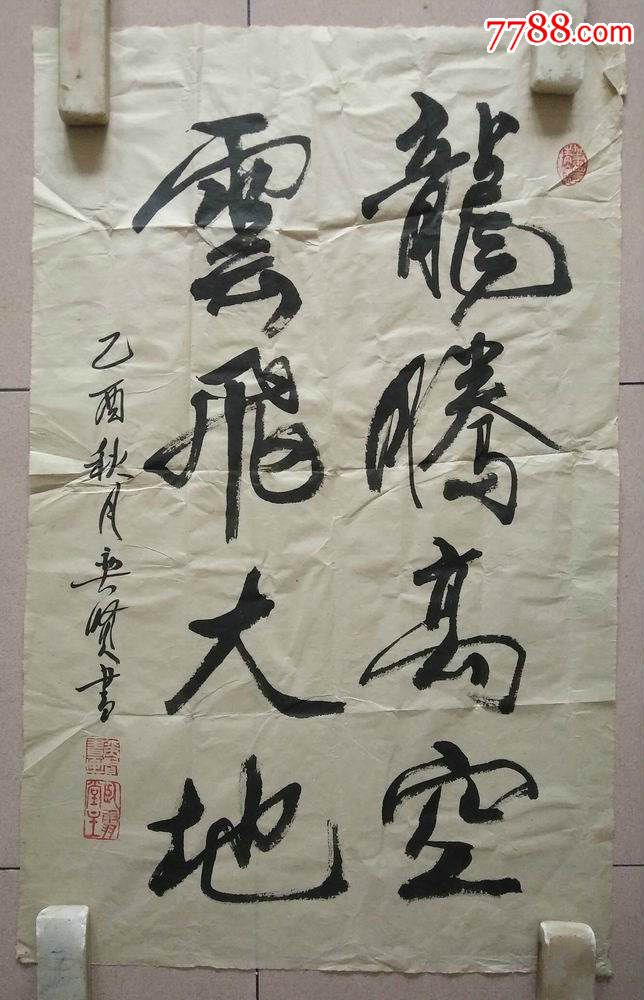 7788.com
龍騰高空
雲飛大地
乙酉秋月 賢書